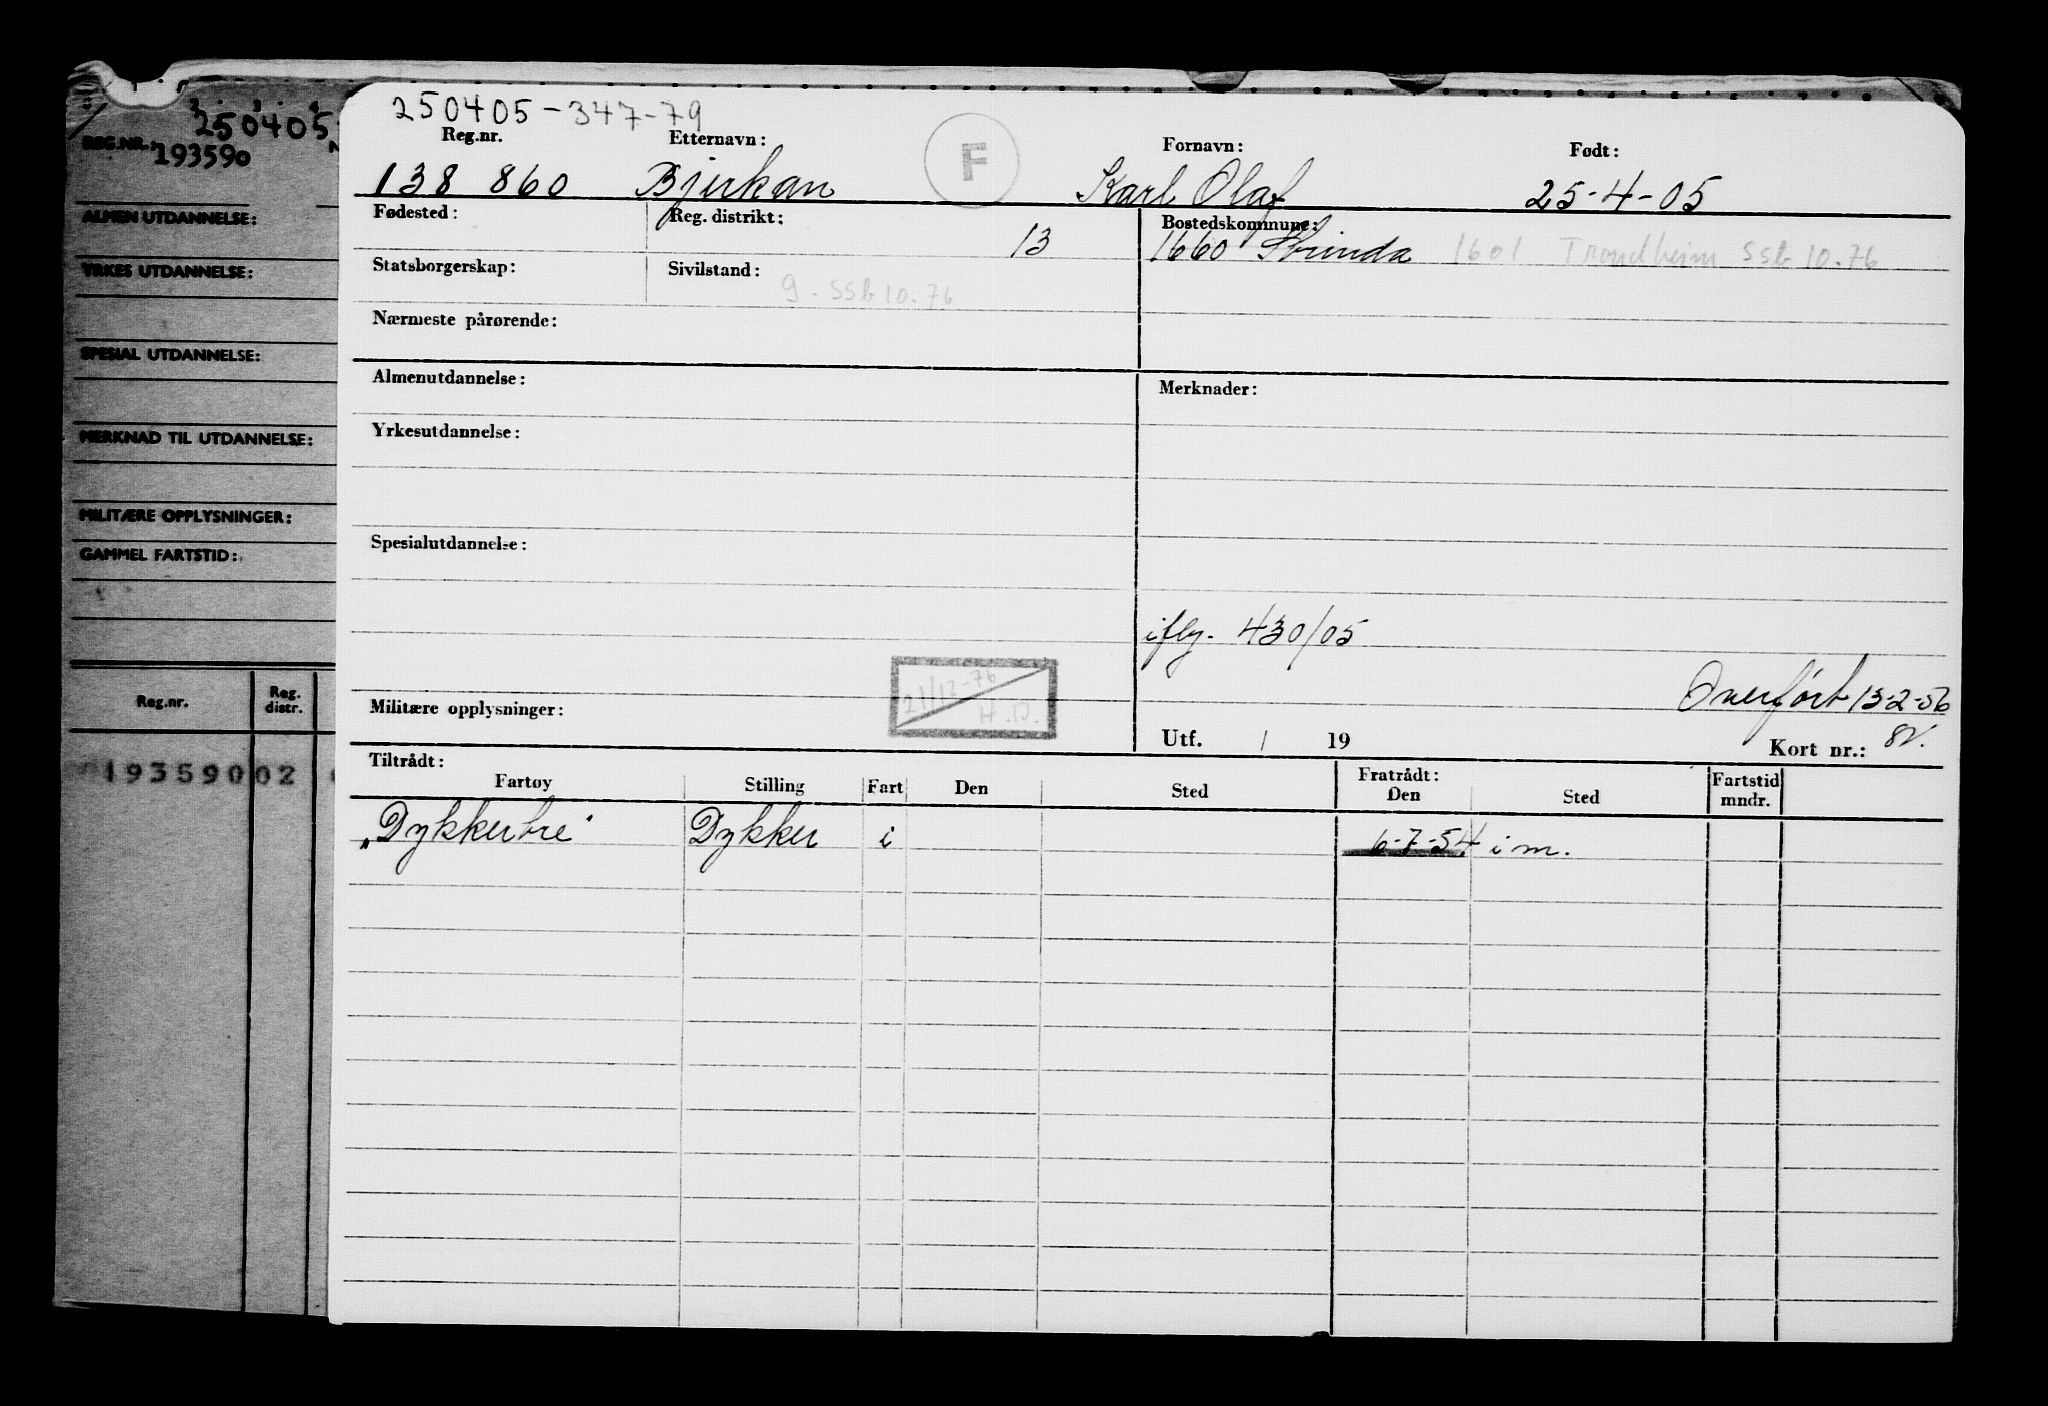 250405
REG.NR.: 193590
ALMEN UTDANNELSE:
YRKES UTDANNELSE:
SPESIAL UTDANNELSE:
MERKNAD TIL UTDANNELSE:
MILITÆRE OPPLYSNINGER:
GAMMEL FARTSTID:
Reg.nr. Reg. distr.
193590 02
250405-347-79
Reg.nr. Etternavn: F Fornavn: Født:
138 860 Bjerkan Karl Olaf 25-4-05
Fødested: Reg. distrikt: 13 Bostedskommune:
1660 Strinda 1601 Trondheim SSb 10.76
Statsborgerskap: Sivilstand: g. SSb 10.76
Nærmeste pårørende:
Almenutdannelse: Merknader:
Yrkesutdannelse:
Spesialutdannelse:
iflg. 430/05
21/12-76
H.D.
Overført 13-2-56
Militære opplysninger:
Utf. / 19 Kort nr.:
Tiltrådt: Fratrådt:
Fartøy Stilling Fart Den Sted Den Sted Fartstid mndr.
"Dykkerbre" Dykker i 6-7-54 i m.